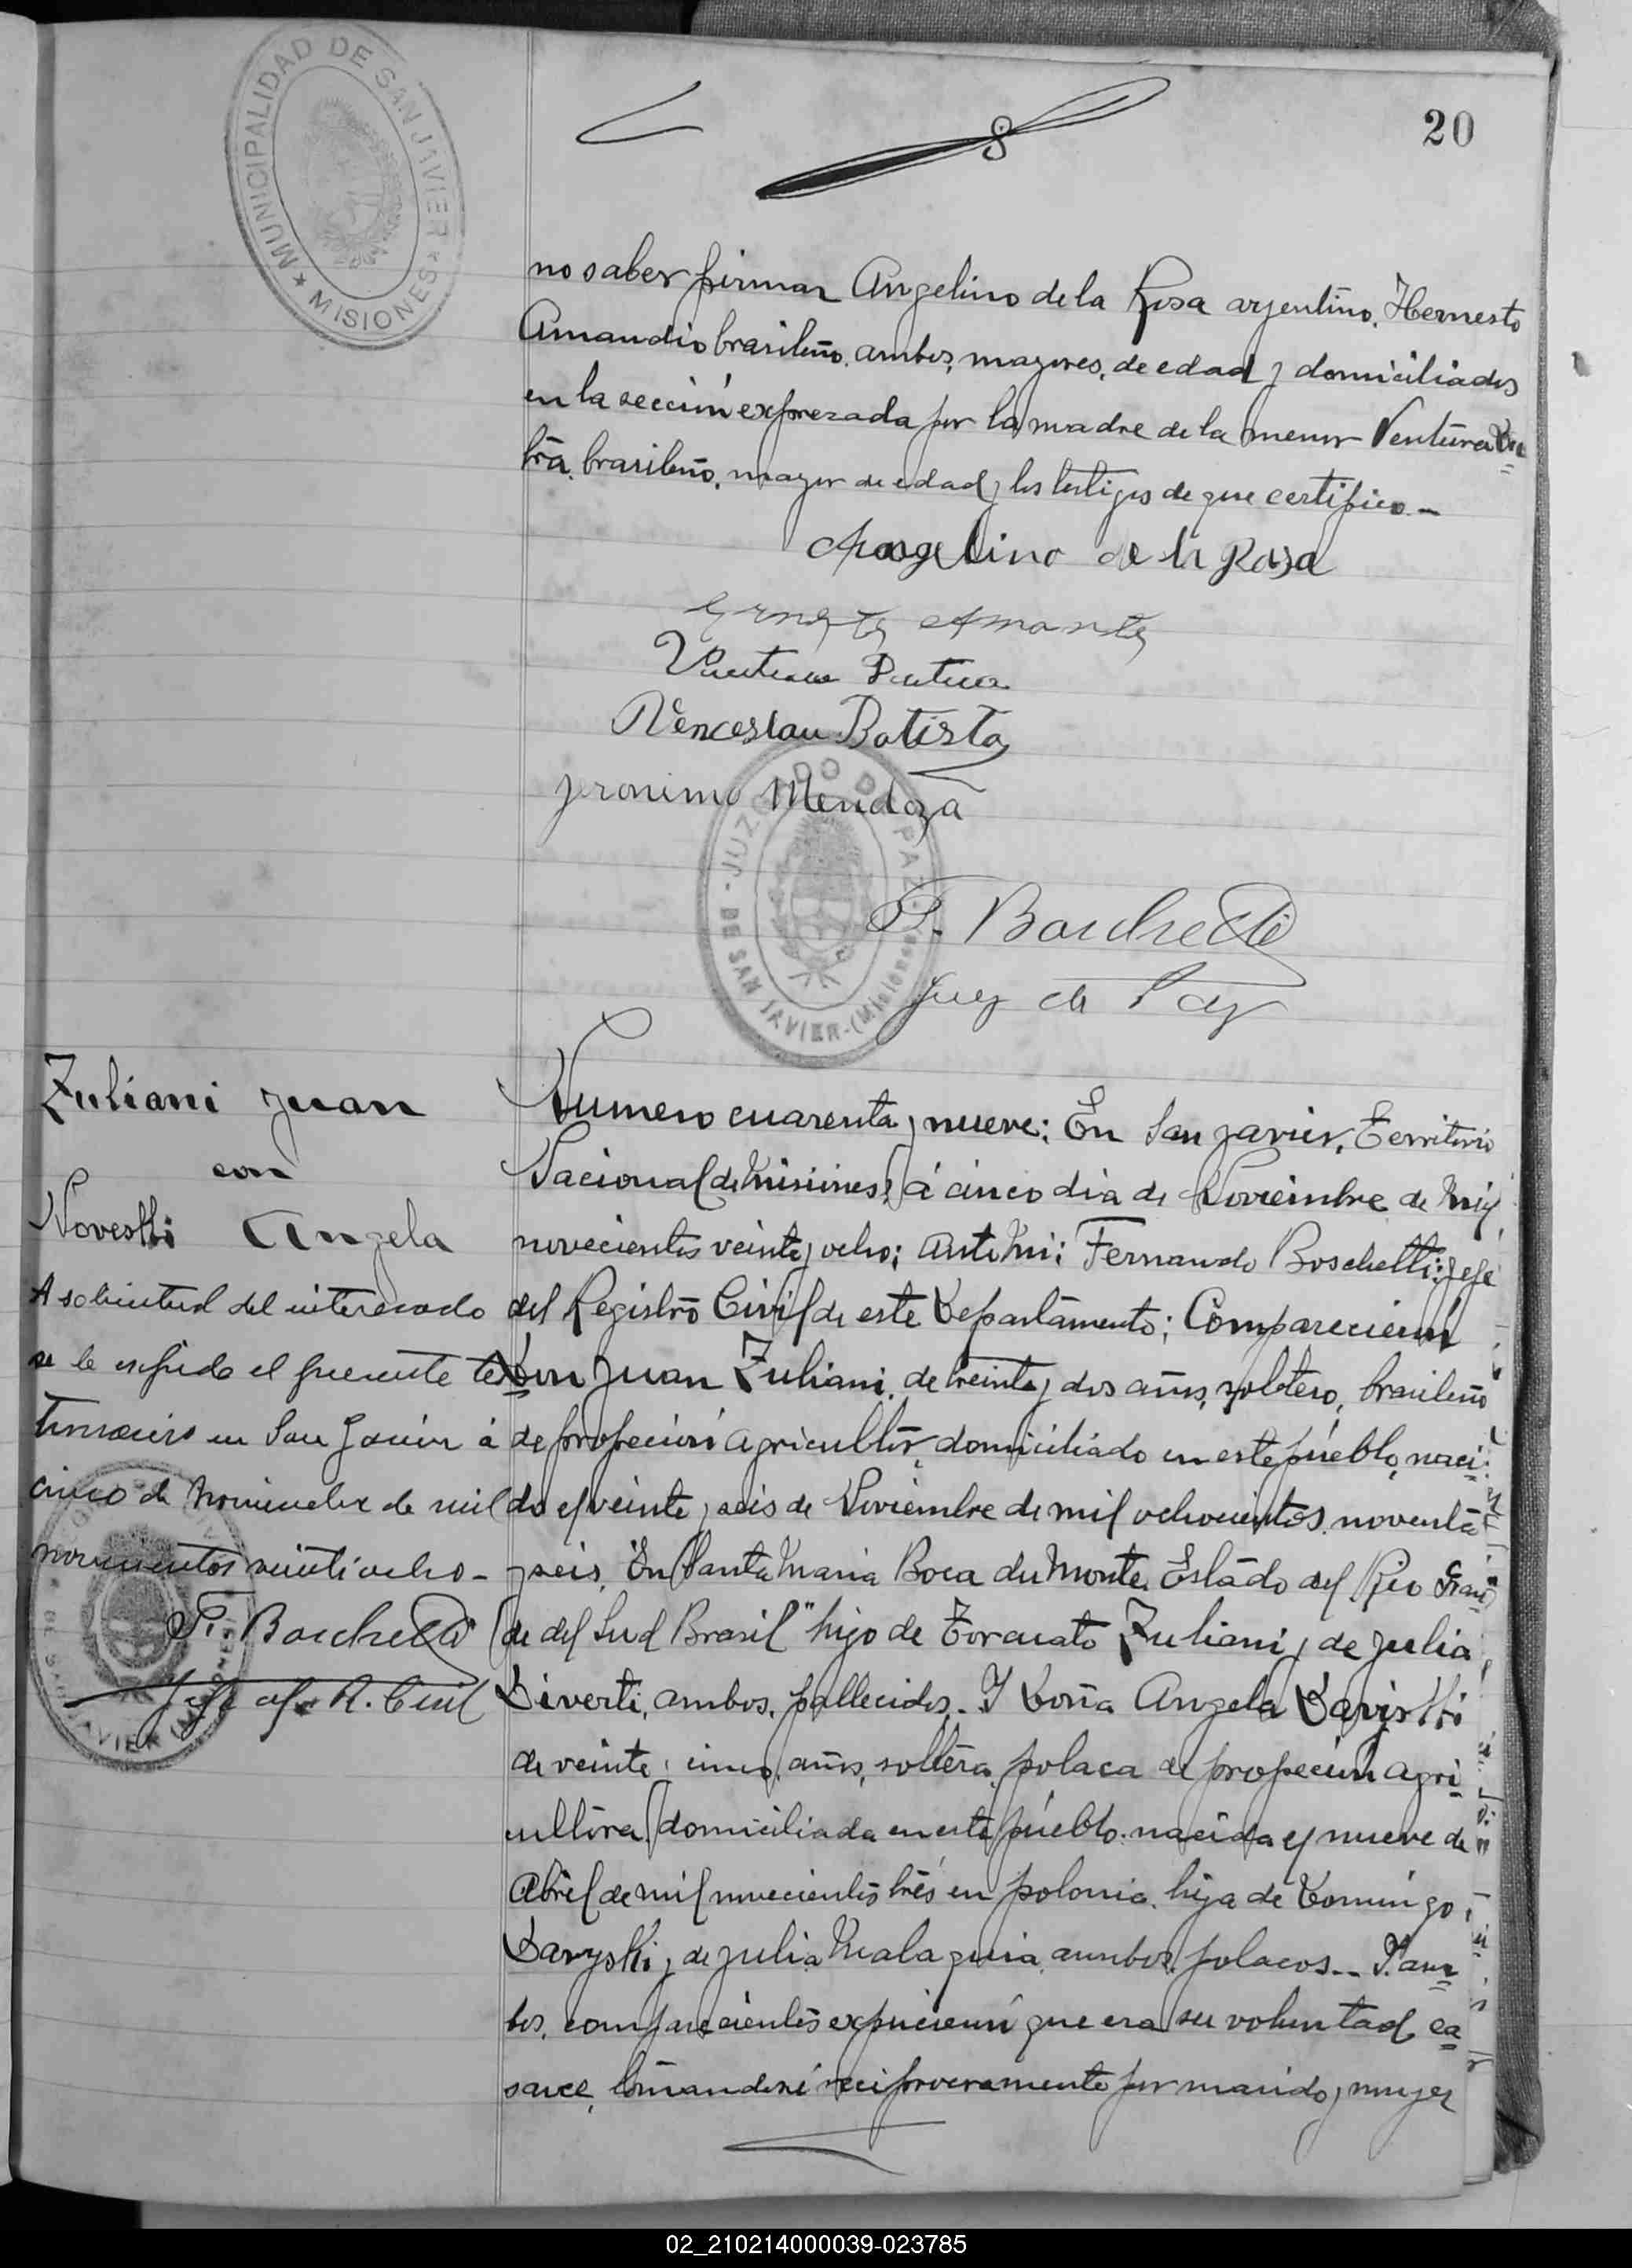 20
MUNICIPALIDAD DE SAN JAVIER
MISIONES
no saber firmar Angelino de la Rosa argentino, Hernesto
Amandio brasileño, ambos, mayores, de edad y domiciliados
en la sección exprezada por la madre de la menor Ventura
brasileño, mayor de edad y los testigos de que certifico.-
Angelino de la Rosa
Ernesto Amante
Wenceslau Batista
Jeronimo Mendoza
JUZGADO DE PAZ
DE SAN JAVIER-(Misiones)
F. Boschetti
Juez de Paz
Zuliani Juan
con
Angela
A solicitud del interesado
se le espide el presente tes
timonio en San Javier á
cinco de Noviembre de mil
novecientos veintiocho-
F. Boschetti
Jefe del R. Civil
Numero cuarenta y nueve: En San Javier, Territorio
Nacional de Misiones, á cinco dia de Noviembre de Mil
novecientos veinte y ocho; Ante Mi: Fernando Boschetti: Jefe
del Registro Civil de este Departamento; Comparecieron
Don Juan Zuliani, de treinta y dos años, soltero, brasileño
de profeción agricultor, domiciliado en este pueblo, naci-
do el veinte y seis de Noviembre de mil ochocientos noventa
y seis, En Santa Maria Boca du Monte, Estado del Rio Gran
de del Sud Brasil" hijo de Torcuato Zuliani y de Julia
Diverti, ambos, fallecidos.- Y Doña Angela
de veinte i cinco, años, soltera, polaca de profeción agri
cultora, domiciliada en este pueblo, nacida el nueve de
Abril de mil novecientos tres en polonia, hija de Domingo
Daryski y de Julia Malaquia, ambos, polacos.-- Y am
bos, comparecientes expucieron que era su voluntad ca
sarce, tomandose reciprocramente por marido y muger
02_210214000039-023785